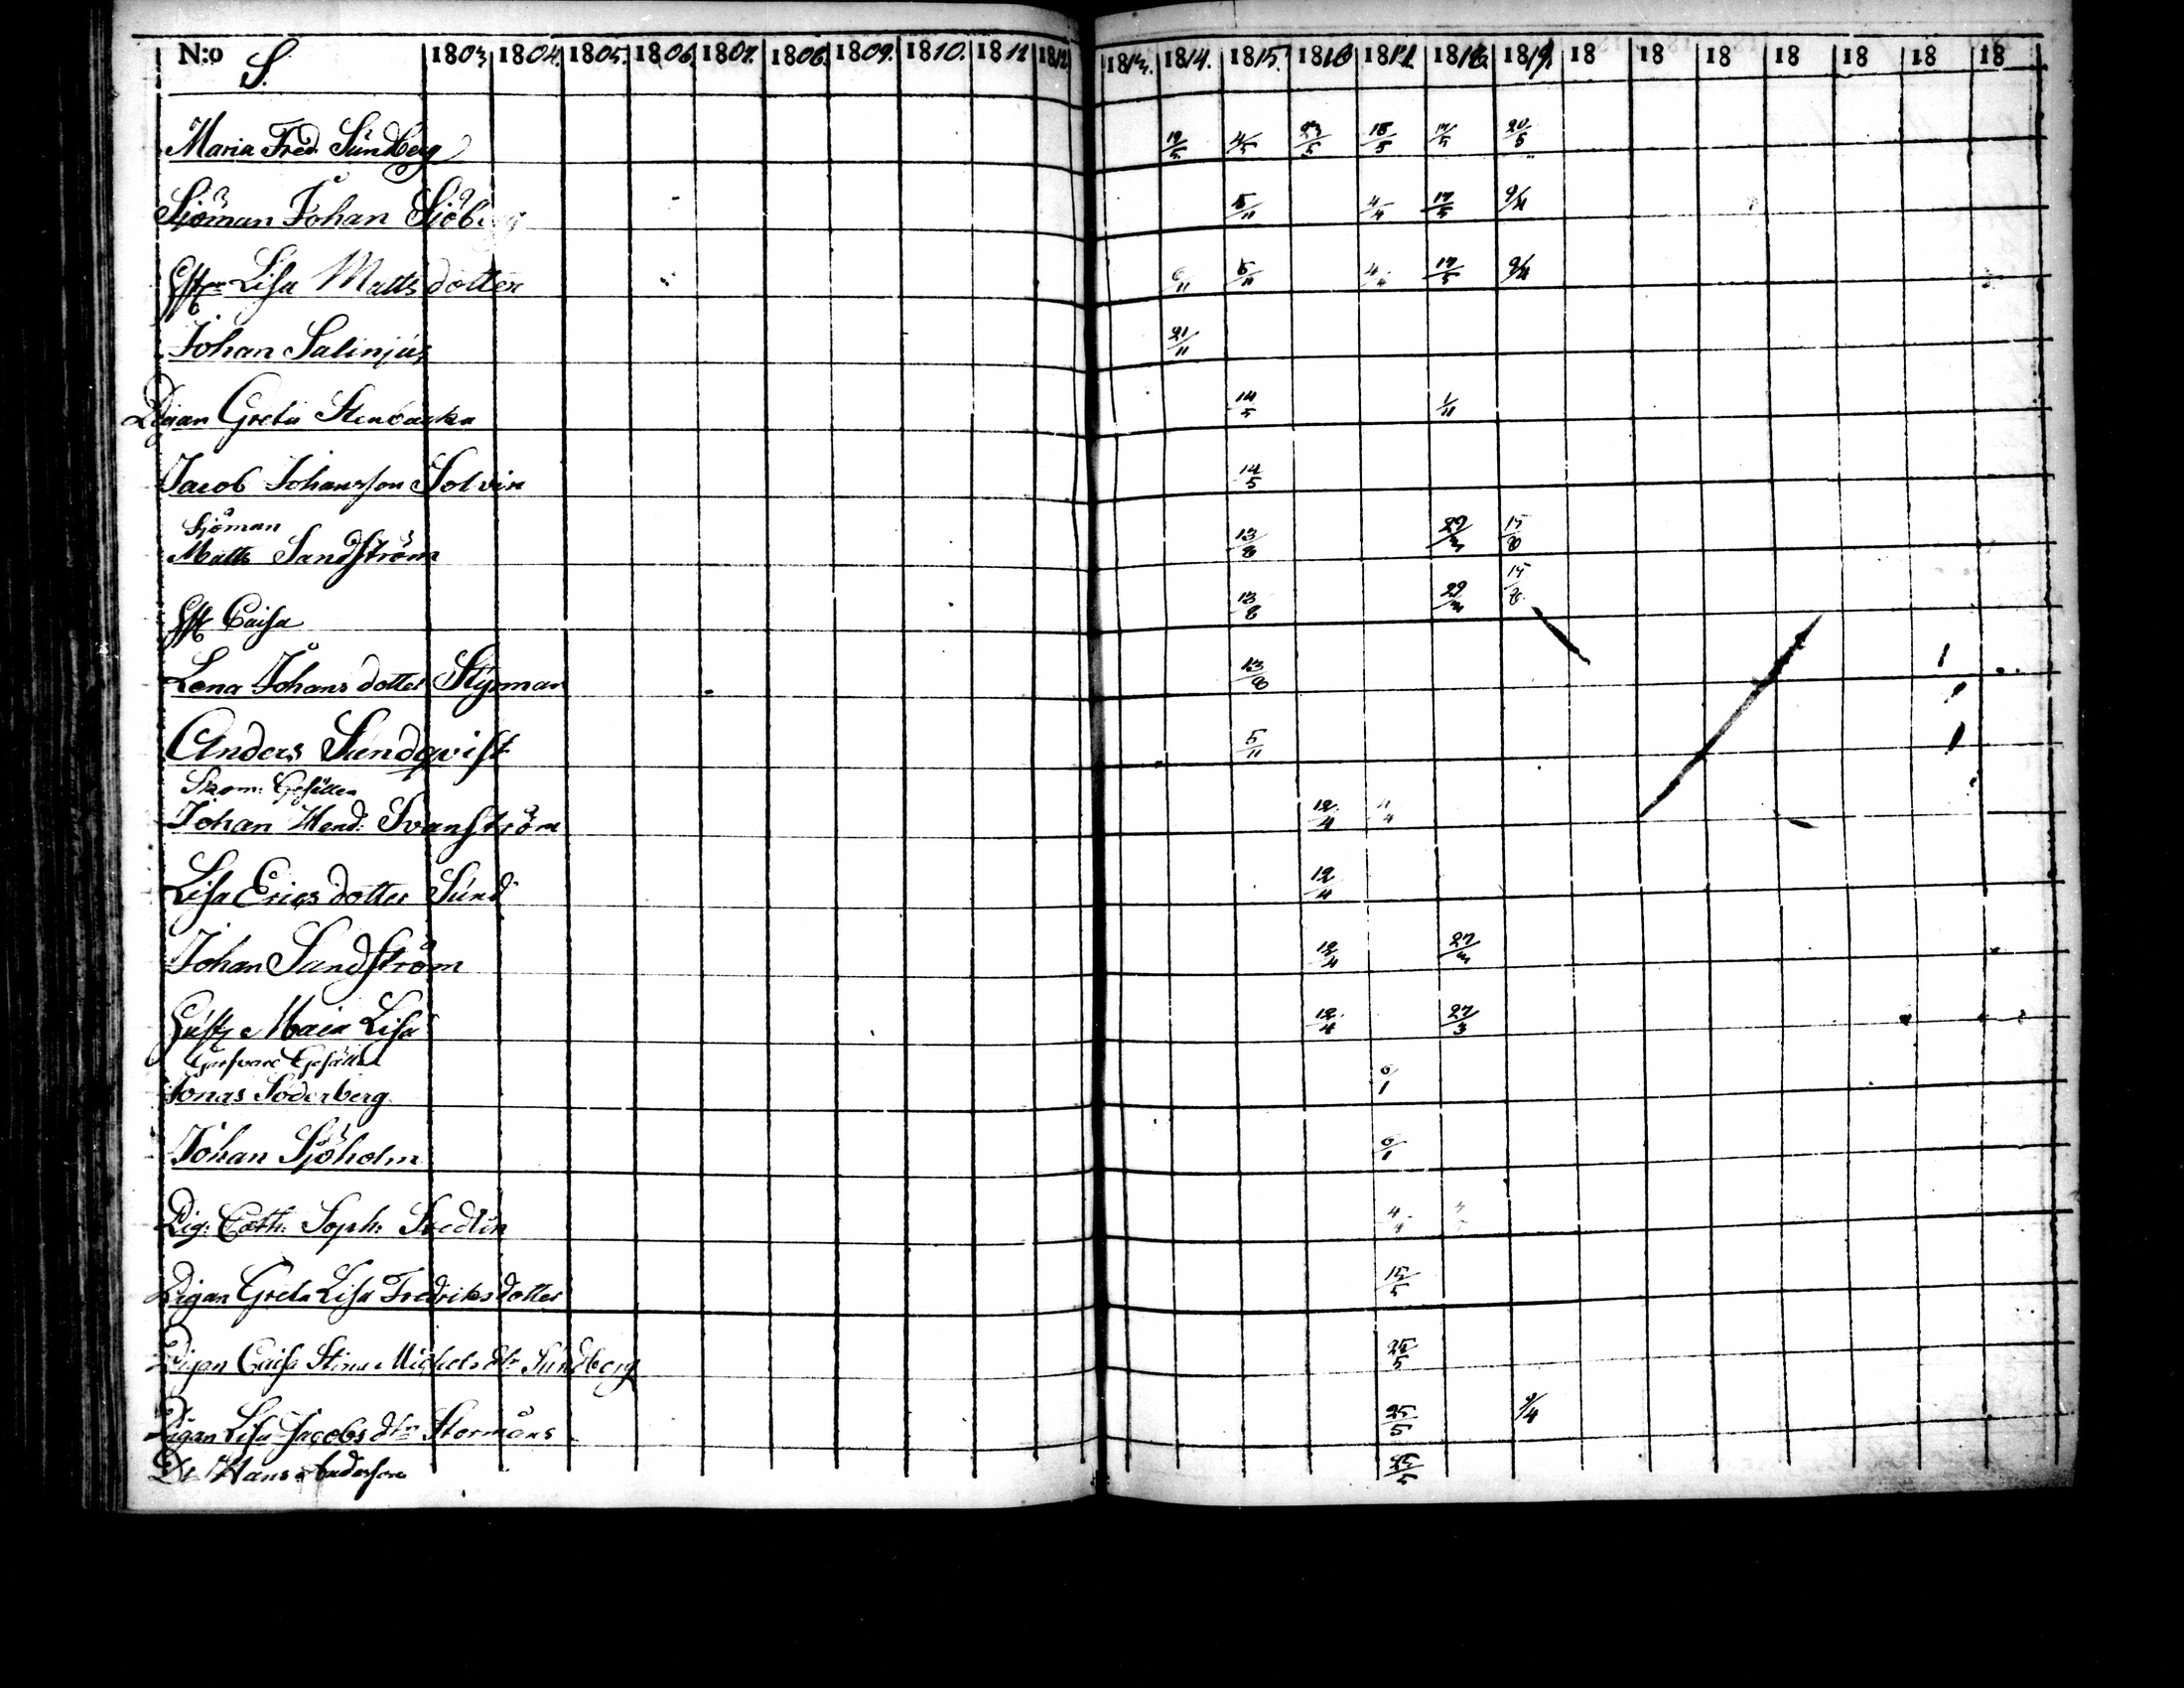 N:o S. 1803. 1804. 1805. 1806. 1807. 1808. 1809. 1810. 1811 1812. 1813. 1814. 1815. 1816 1817. 1818. 1819. 18 18 18 18 18 18 18
Maria Fred. Sundberg 19/5 4/5 23/5 18/5 17/5 20/5
Sjöman Johan Sjöberg 5/11 4/4 17/5 9/4
Lisa Matts dotter /11 5/11 4/4 17/5 9/4
Johan Salinjus 21/11
Pigan Greta Stenbacka 14/5 1/11
Jacob Johansson Solvin 14/5
Sjöman
Matts Sandström 13/8 29/3 15/8
Caisa 13/8 29/3 15/8
Lena Johans dotter Styrman 13/8
Anders Sundqvist 5/11
Skom: Gesällen
Johan Hend: Svanström 12/4 4/4
Lisa Erics dotter Sund 12/4
Johan Sandström 12/4 27/3
Hust Maja Lisa 12/4 27/3
Garfvare Gesällen
Jonas Söderberg 6/1
Johan Sjöholm 6/1
Pig: Cath: Soph: Svedlin 4/4
Pigan Greta Lisa Fredriks dotter 15/5
Pigan Caisa Stina Michels dtr Sundberg 25/5
Pigan Lisa Jacobs dtr Stormåns 25/5 9/4
Dr Hans Andersson 25/5